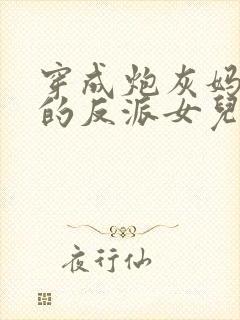 穿成炮灰妈
的反派女兒
夜行仙